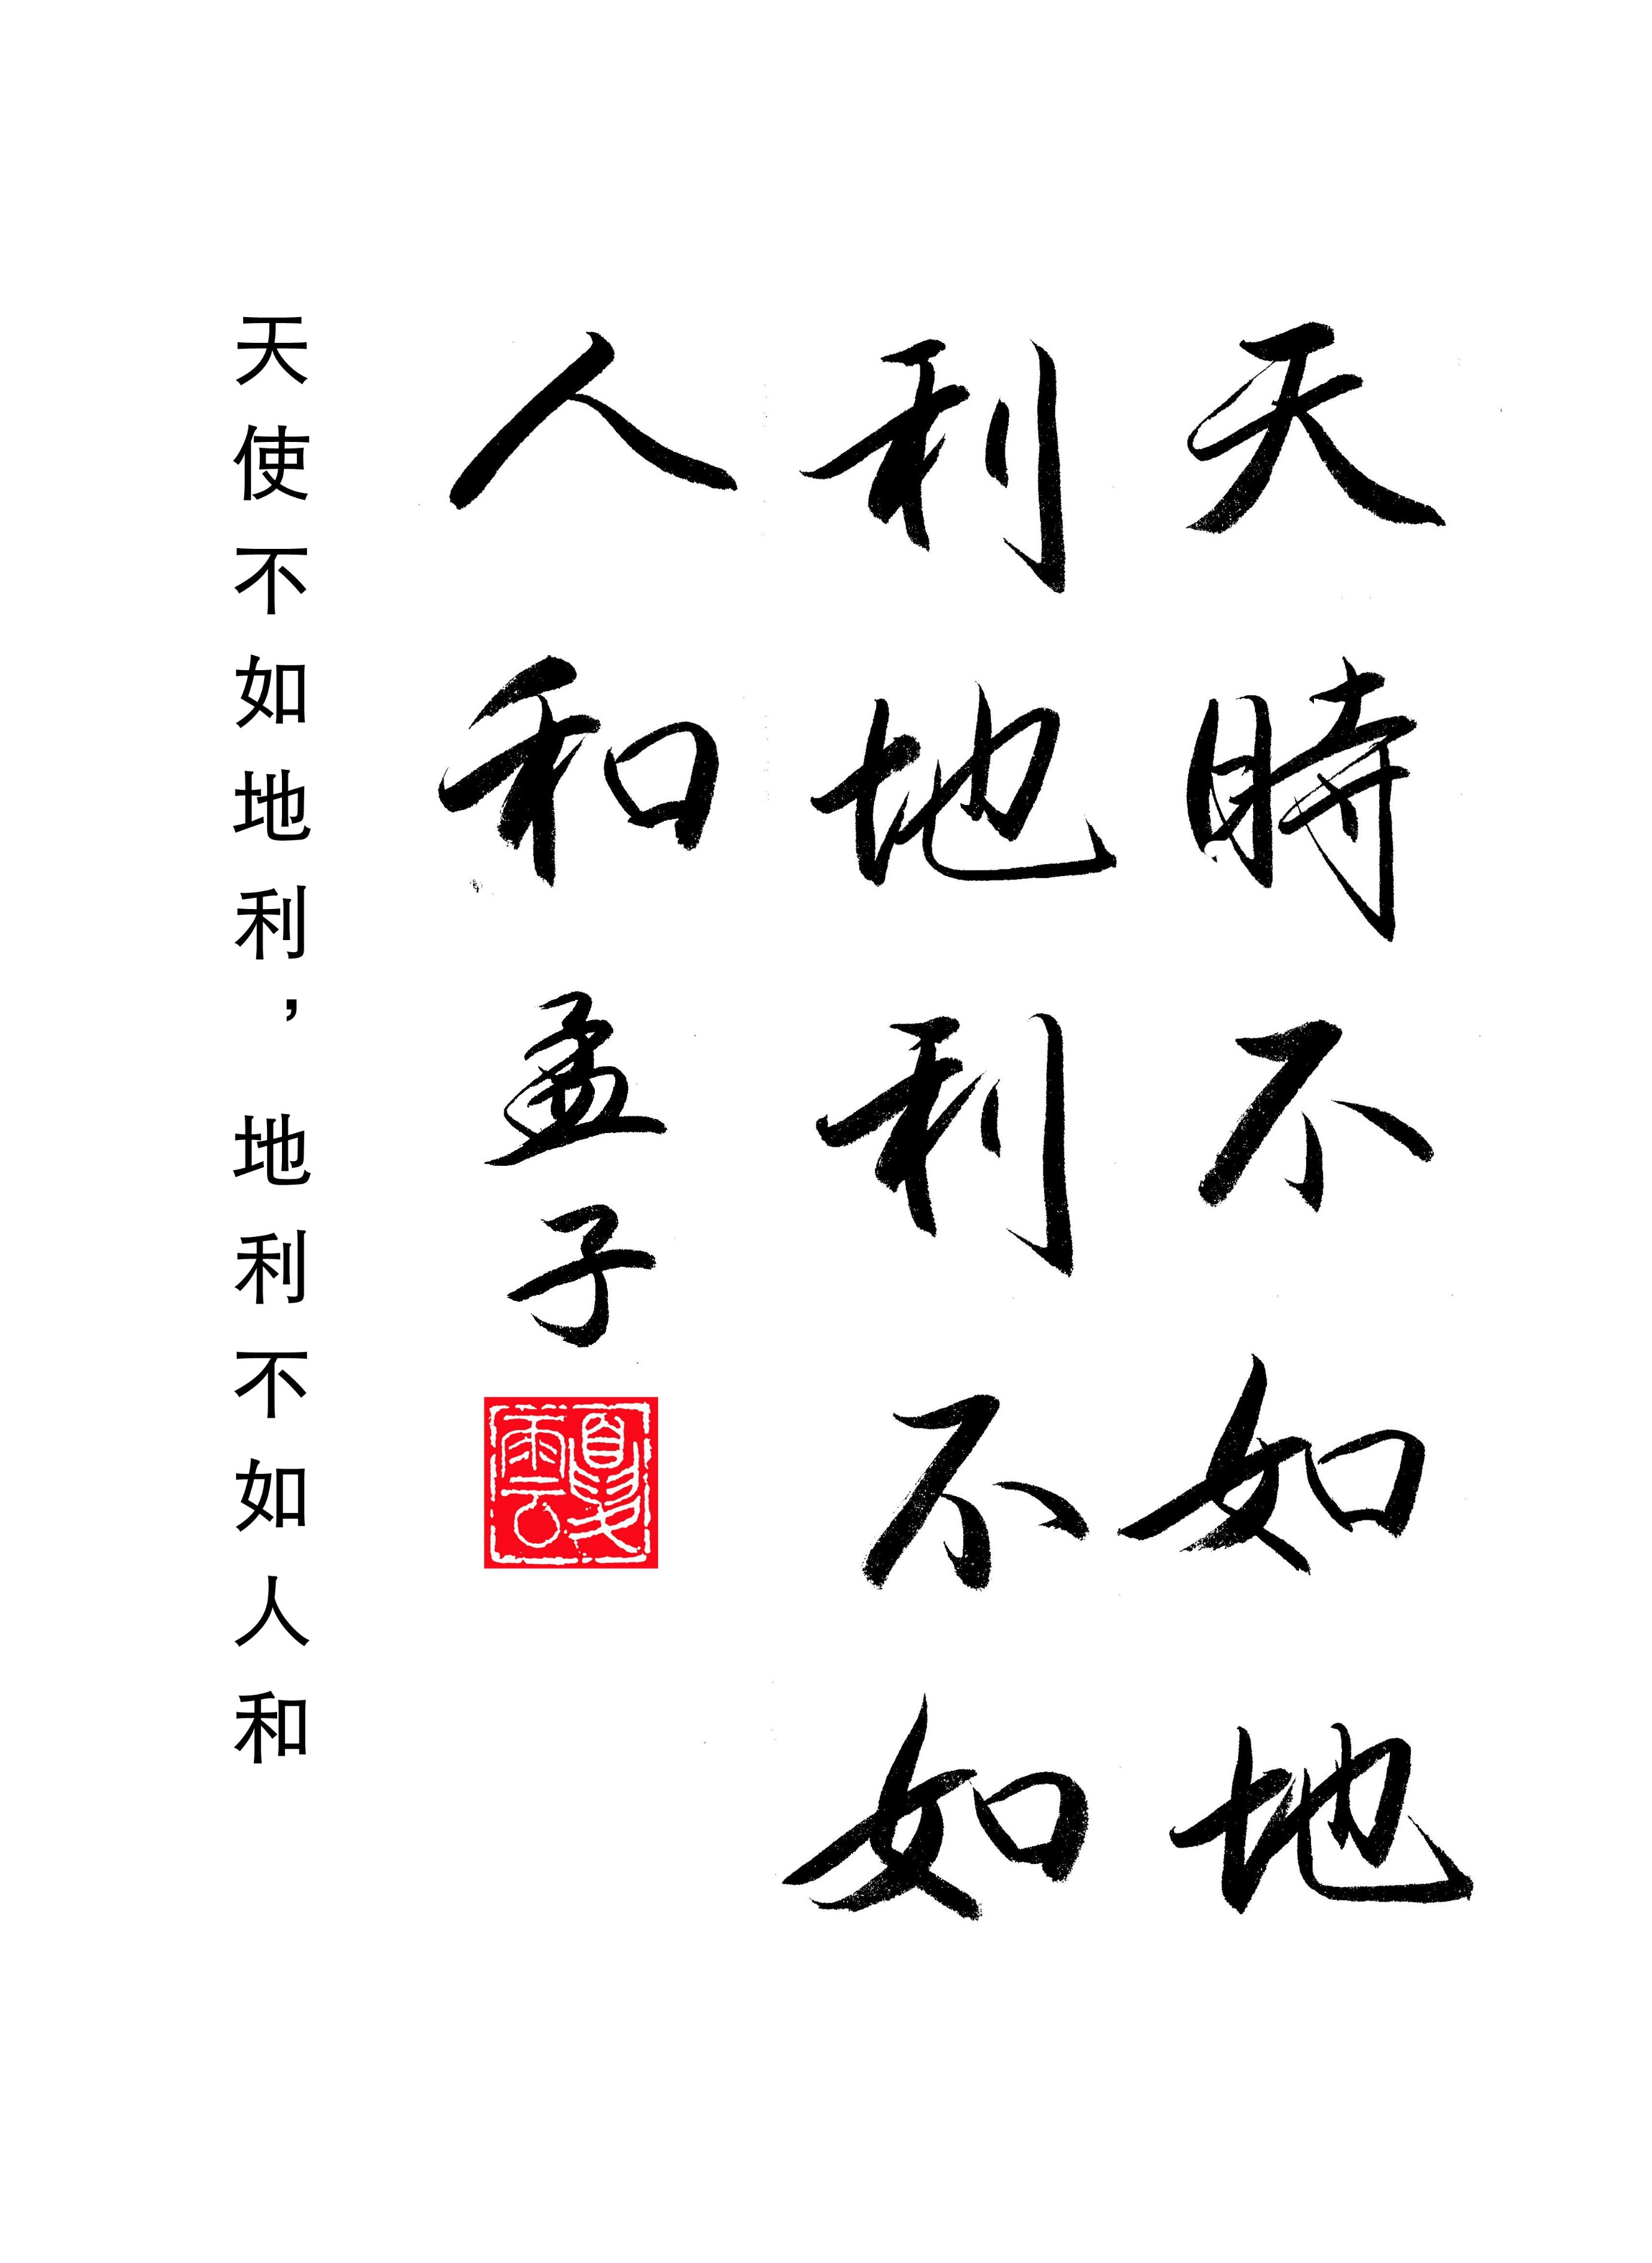 天時不如地
利地利不如
人和 孟子
夏雲
天使不如地利，地利不如人和